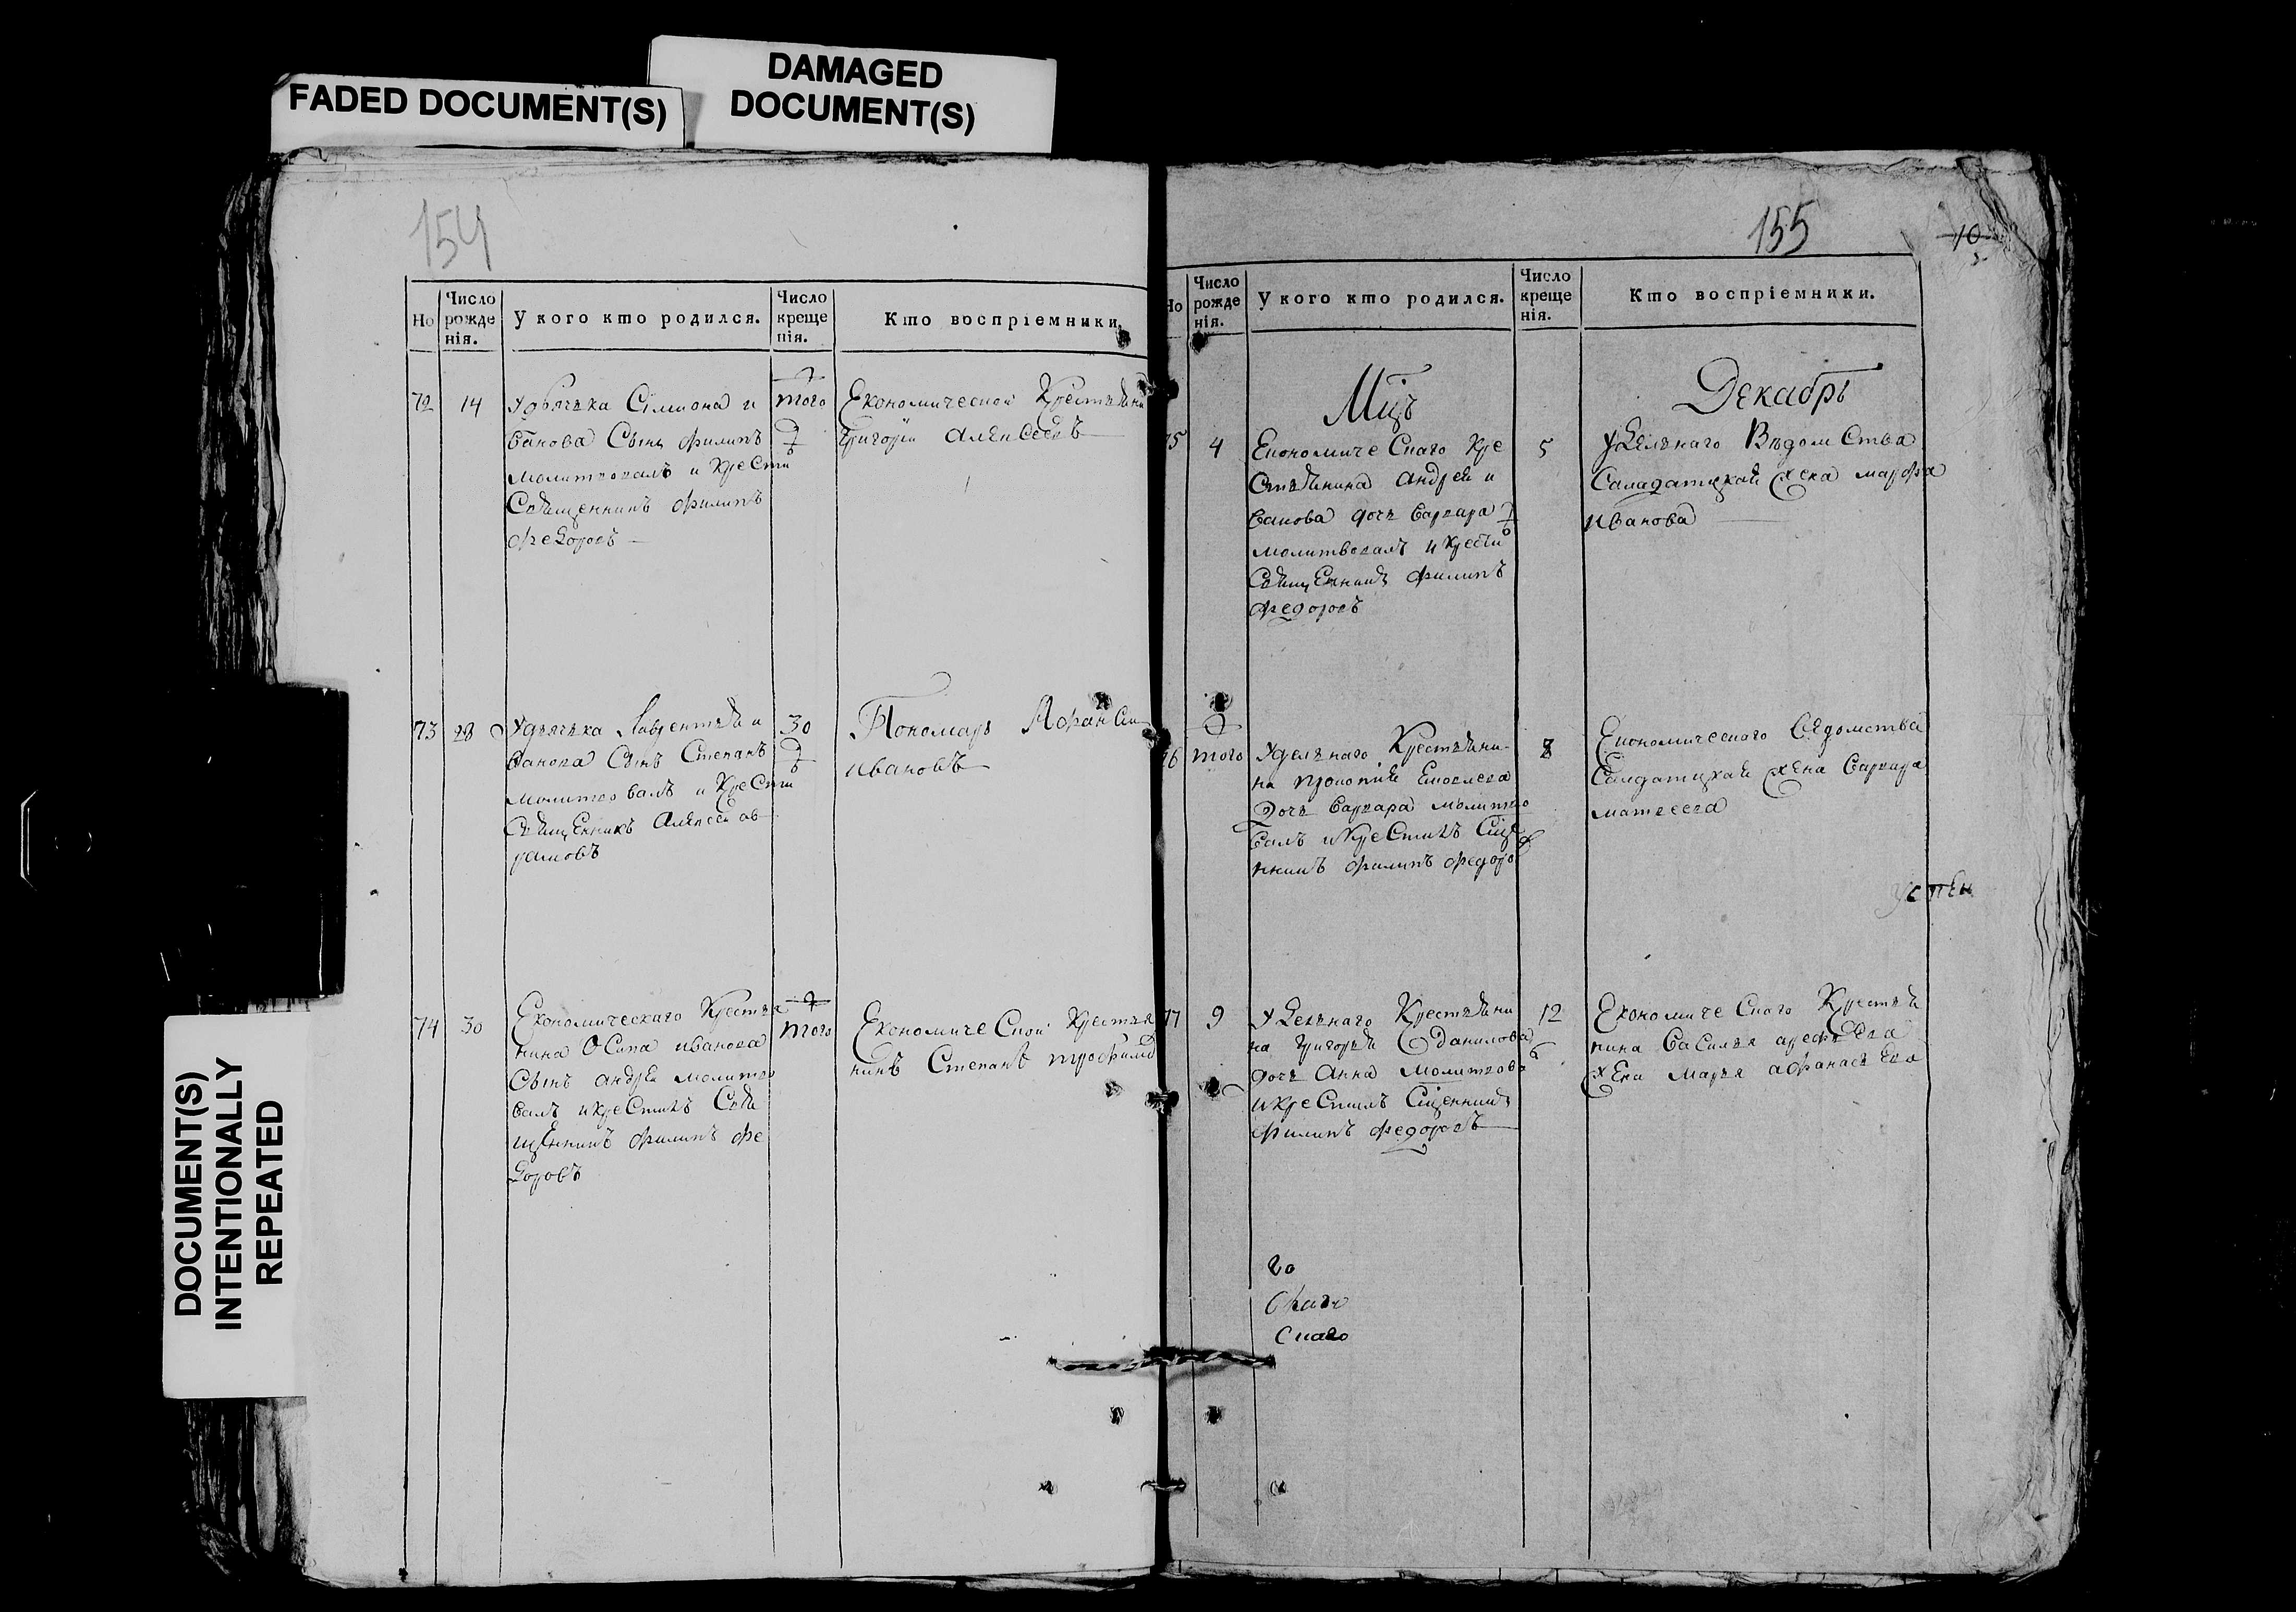 FADED DOCUMENT(S)
DAMAGED
DOCUMENT(S)
DOCUMENT(S)
INTENTIONALLY
REPEATED
154
Но
Число
рожде
нія.
У кого кто родился.
Число
креще
нія.
Кто воспріемники.
72
14
Удьячка Сімиона и
ванова Сынъ филипъ
молитвовалъ и Крести
Священникъ филипъ
федоровъ
того
Економической Крестьянин
Григорій Алексеевъ
73
28
Удьячка Лаврентья и
ванова Сынъ Степанъ
молитвовалъ и Крести
Священникъ Алексей ав
рамовъ
30
Пономарь Афанси
ивановъ
74
30
Економическаго Крестья
нина Осипа иванова
Сынъ андрей молитво
валъ икрестилъ Свя
щенникъ филипъ фе
доровъ
того
Економической Крестья
нинъ Степанъ трофимо
155
10
Но
Число
рожде
нія.
У кого кто родился.
Число
креще
нія.
Кто воспріемники.
Мцъ
Декабрь
75
4
Економическаго Кре
стьянина андрея и
ванова дочь варвара
молитвовалъ и крести
Священникъ филипъ
федоровъ
5
Удельнаго Ведомства
Салдатская жена марфа
иванова
76
того
Удельнаго Крестьяни
на прокопія
дочь варвара молитво
валъ икрестилъ Сще
нникъ филипъ федоро
8
Економическаго ведомства
Салдатская жена варвара
матвеева
успен
77
9
Удельнаго Крестьяни
на григорья данилова
дочь анна молитвова
икрестилъ Сщенникъ
филипъ федоровъ
12
Економическаго Крестья
нина василья арефьева
жена марья афанасьева
го
скаго